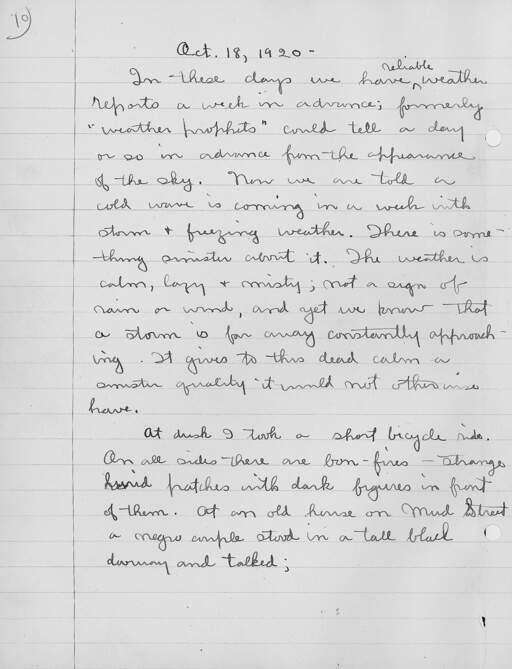 70
Oct. 18, 1920 -
reliable
In these days we have, weather
reports a week in advance; formerly
"weather prophets" could tell a day
or so in advance from the appearance
of the sky. Now we are told a
cold wave is coming in a week with
storm + freezing weather. There is some-
thing sinister about it. The weather is
calm, lazy + misty; not a sign of
rain or wind, and yet we know that
a storm is far away constantly approach-
ing. It gives to this dead calm a
sinister quality it would not otherwise
have.
At dusk I took a short bicycle ride.
On all sides there are bon-fires - strange
patches with dark figures in front
of them. At an old house on Mud Street
a negro couple stood in a tall black
doorway and talked;